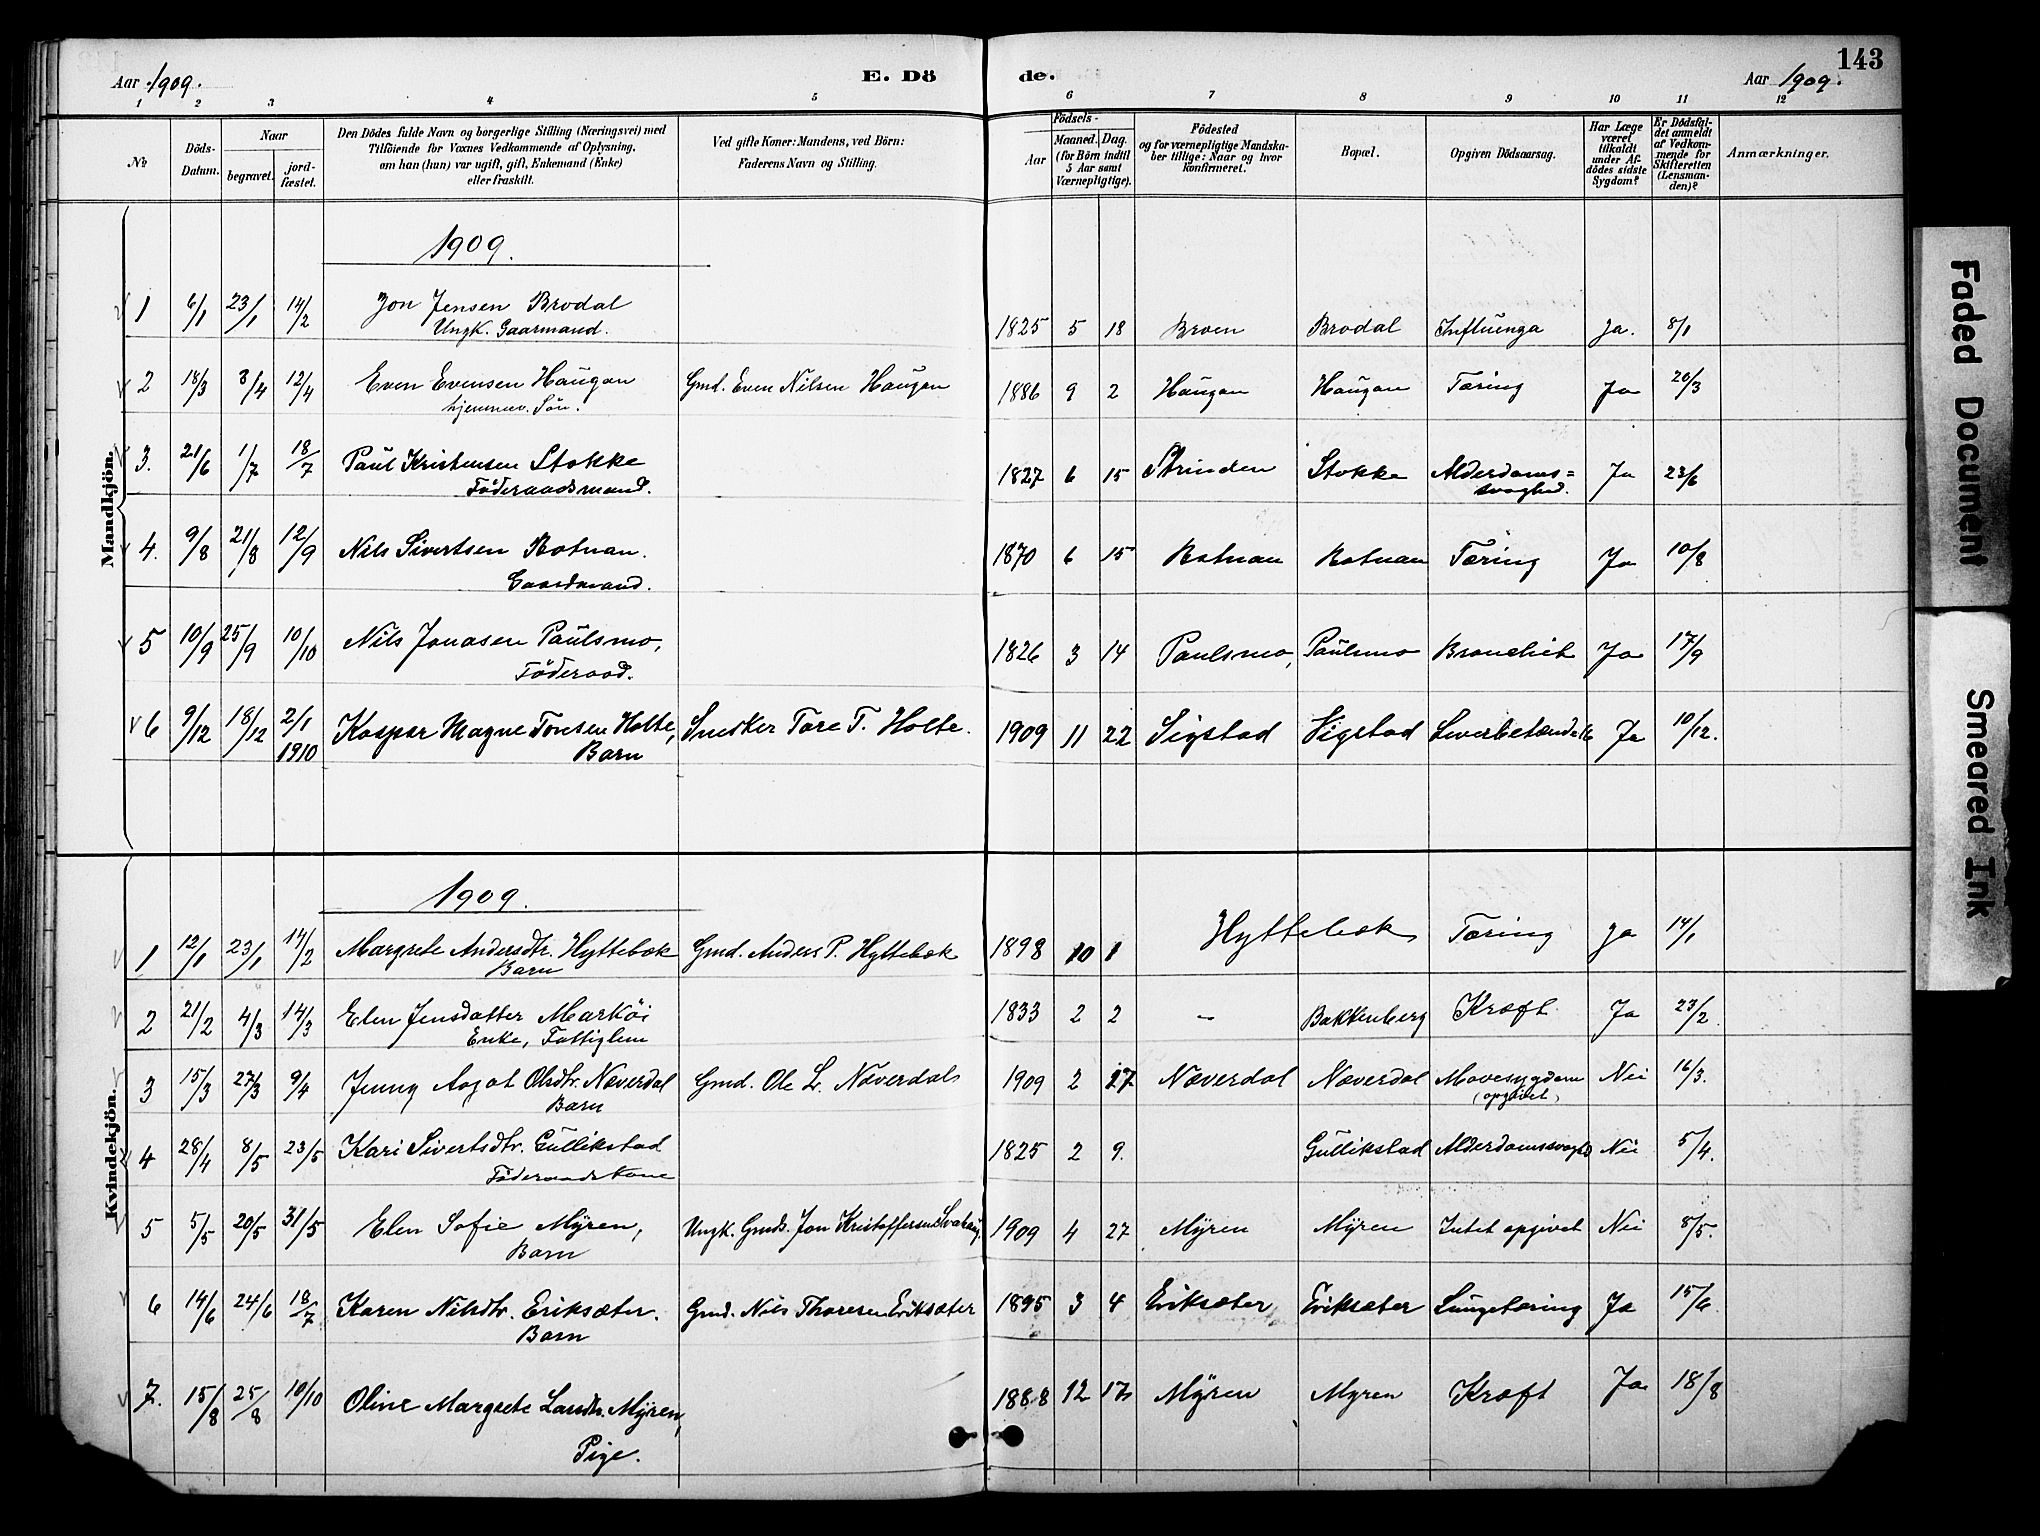 143
Aar 1909.
E. Döde.
Aar 1909.
1 2 3 4 5 6 7 8 9 10 11 12
No
Döds-Datum.
Naar
begravet.
jord-fæstet.
Den Dödes fulde Navn og borgerlige Stilling (Næringsvei) med
Tilföiende for Voxnes Vedkommende af Oplysning,
om han (hun) var ugift, gift, Enkemand (Enke)
eller fraskilt.
Ved gifte Koner: Mandens, ved Börn:
Faderens Navn og Stilling.
Födsels-
Aar
Maaned. Dag.
(for Börn indtil
5 Aar samt
Værnepligtige).
Födested
og for værnepligtige Mandska-
ber tillige: Naar og hvor
konfirmeret.
Bopæl.
Opgiven Dödsaarsag.
Har Læge
været
tilkaldt
under Af-
dödes sidste
Sygdom?
Er Dödsfal-
det anmeldt
af Vedkom-
mende for
Skifteretten
(Lensman-
den)?
Anmærkninger.
Mandkjön.
1909.
1 6/1 23/1 14/2 Jon Jensen Brodal 1825 5 18 Broen Brodal Influenza Ja. 8/1
Ungk. Gaarmand.
2 18/3 3/4 12/4 Even Evensen Haugan Gmd. Even Nilsen Haugen 1886 9 2 Haugan Haugan Tæring Ja 20/3
hjemmev. Sön.
3. 21/6 1/7 18/7 Paul Kristensen Stokke 1827 6 15 Strinden Stokke Alderdoms=svaghed. Ja 23/6
Föderaadsmand.
4. 9/8 21/8 12/9 Nils Sivertsen Botnan. 1870 6 15 Botnan Botnan Tæring Ja 10/8
Gaardmand.
5 10/9 25/9 10/10 Nils Jonasen Paulsmo, 1826 3 14 Paulsmo, Paulsmo Bronchit Ja 17/9
Föderaad.
6 9/12 18/12 2/1 1910 Kaspar Magne Toresen Holte, Snedker Tore T. Holte. 1909 11 22 Sigstad Sigstad Leverbetændelse Ja 10/12.
Barn
Kvindekjön.
1909.
1 12/1 23/1 14/2 Margrete Andersdtr. Hyttebæk Gmd. Anders P. Hyttebæk 1898 10 1 Hyttebæk Tæring Ja 14/1
Barn
2 21/2 4/3 14/3 Elen Jensdatter Marköi 1833 2 2 — Bakkenberg Kræft Ja 23/2
Enke, Fattiglem
3 15/3 27/3 9/4 Jenny Aagot Olsdtr. Næverdal Gmd. Ole L. Næverdal 1909 2 27 Næverdal Næverdal Mavesygdom (opgivet) Nei 16/3.
Barn
4 28/4 8/5 23/5 Kari Sivertsdtr. Gullikstad 1825 2 9. Gullikstad Alderdomssvaghed Nei 5/4.
Föderaadskone
5 5/5 20/5 31/5 Elen Sofie Myren, Ungk. Gmds. Jon Kristoffersen 1909 4 27 Myren Myren Intet opgivet Nei 8/5.
Barn
6 14/6 24/6 18/7 Karen Nilsdtr. Eriksæter. Gmd. Nils Thoresen Eriksæter 1895 3 4 Eriksæter Eriksæter Lungetæring Ja 15/6.
Barn
7. 15/8 25/8 10/10 Oline Margrete Myren, 1888 12 17 Myren Myren Kræft Ja 18/8
Pige.
Faded Document
Smeared Ink